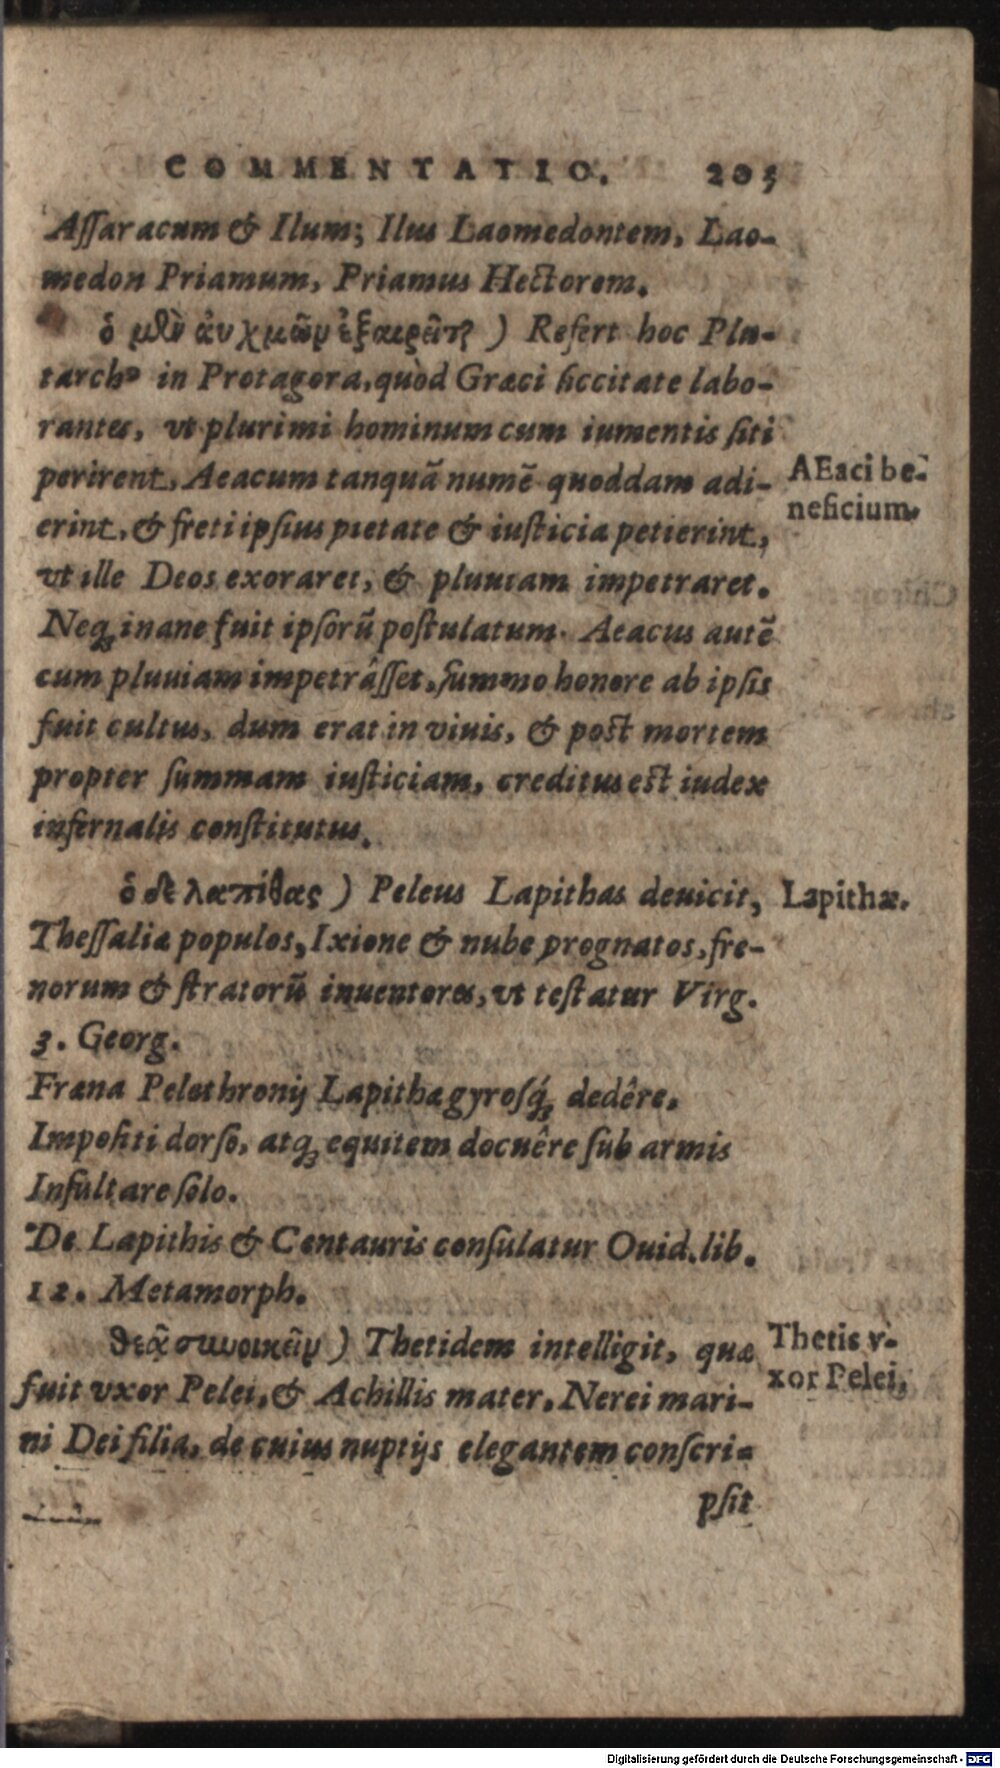 COMMENTATIO. 205
Aſſaracum & Ilum; Ilus Laomedontem, Lao-
medon Priamum, Priamus Hectorem.
ὁ μὲν ἀυχμῶν ἐξαιρεῖτ) Refert hoc Plu-
tarchꝰ in Protagora, quòd Græci ſiccitate labo-
rantes, vt plurimi hominum cum iumentis ſiti
perirent, Aeacum tanquã numẽ quoddam adi-
erint, & freti ipſius pietate & iuſticia petierint,
vt ille Deos exoraret, & pluuiam impetraret.
Neqꝫ inane fuit ipſorũ poſtulatum. Aeacus autẽ
cum pluuiam impetrâſſet, ſummo honore ab ipſis
fuit cultus, dum erat in viuis, & poſt mortem
propter ſummam iuſticiam, creditus eſt iudex
infernalis conſtitutus.
AEaci be-
neficium.
ὁ δὲ λαπίθας) Peleus Lapithas deuicit,
Theſſaliæ populos, Ixione & nube prognatos, fre-
norum & ſtratorũ inuentores, vt teſtatur Virg.
3. Georg.
Lapithæ.
Fræna Pelethronij Lapithæ gyroſq́ꝫ dedêre,
Impoſiti dorſo, atqꝫ equitem docuêre ſub armis
Inſultare ſolo.
De Lapithis & Centauris conſulatur Ouid. lib.
12. Metamorph.
θεᾷ συνοικεῖν) Thetidem intelligit, quæ
fuit vxor Pelei, & Achillis mater, Nerei mari-
ni Dei filia, de cuius nuptijs elegantem conſcri-
Thetis v-
xor Pelei,
pſit
Digitalisierung gefördert durch die Deutsche Forschungsgemeinschaft - DFG